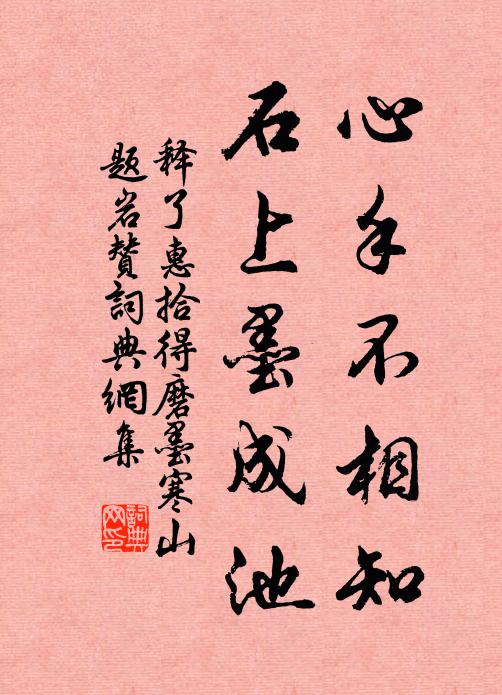 心手不相知
石上墨成池
释了惠拾得磨墨寒山
题岩赞詞典網集
詞典
网印